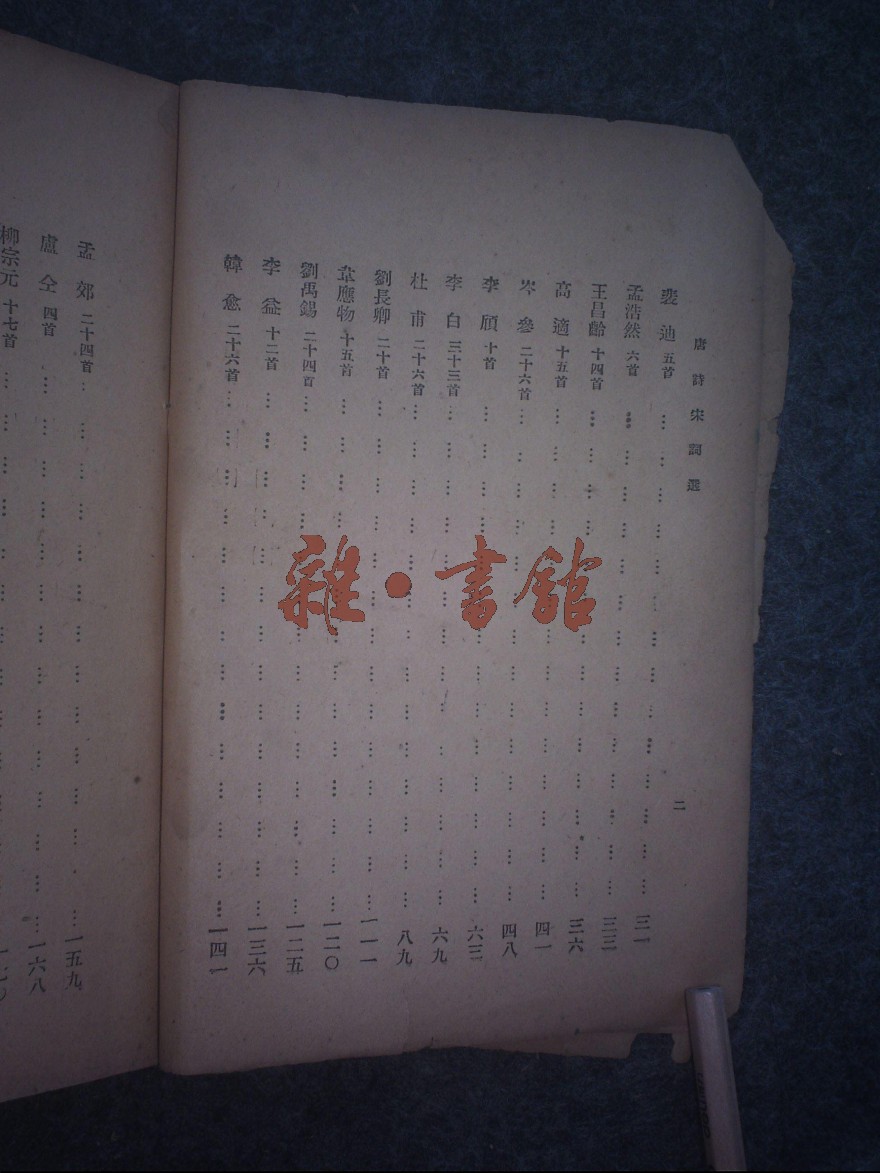 唐詩宋詞選 二
裴迪 五首 三一
孟浩然 六首 三三
王昌齡 十四首 三六
高適 十五首 四一
岑參 二十六首 四八
李頎 十首 六三
李白 三十三首 六九
杜甫 二十六首 八九
劉長卿 二十首 一一一
韋應物 十五首 一二〇
劉禹錫 二十四首 一二五
李益 十二首 一三六
韓愈 二十六首 一四一
孟郊 二十四首 一五九
盧仝 四首 一六八
柳宗元 十七首
雜·書館